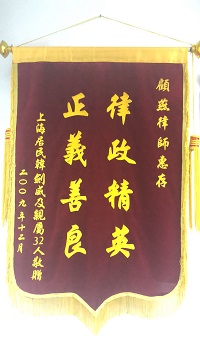 顧燕律師惠存
律政精英
正義善良
上海居民韓劍威及親屬32人敬贈
二〇〇九年十二月